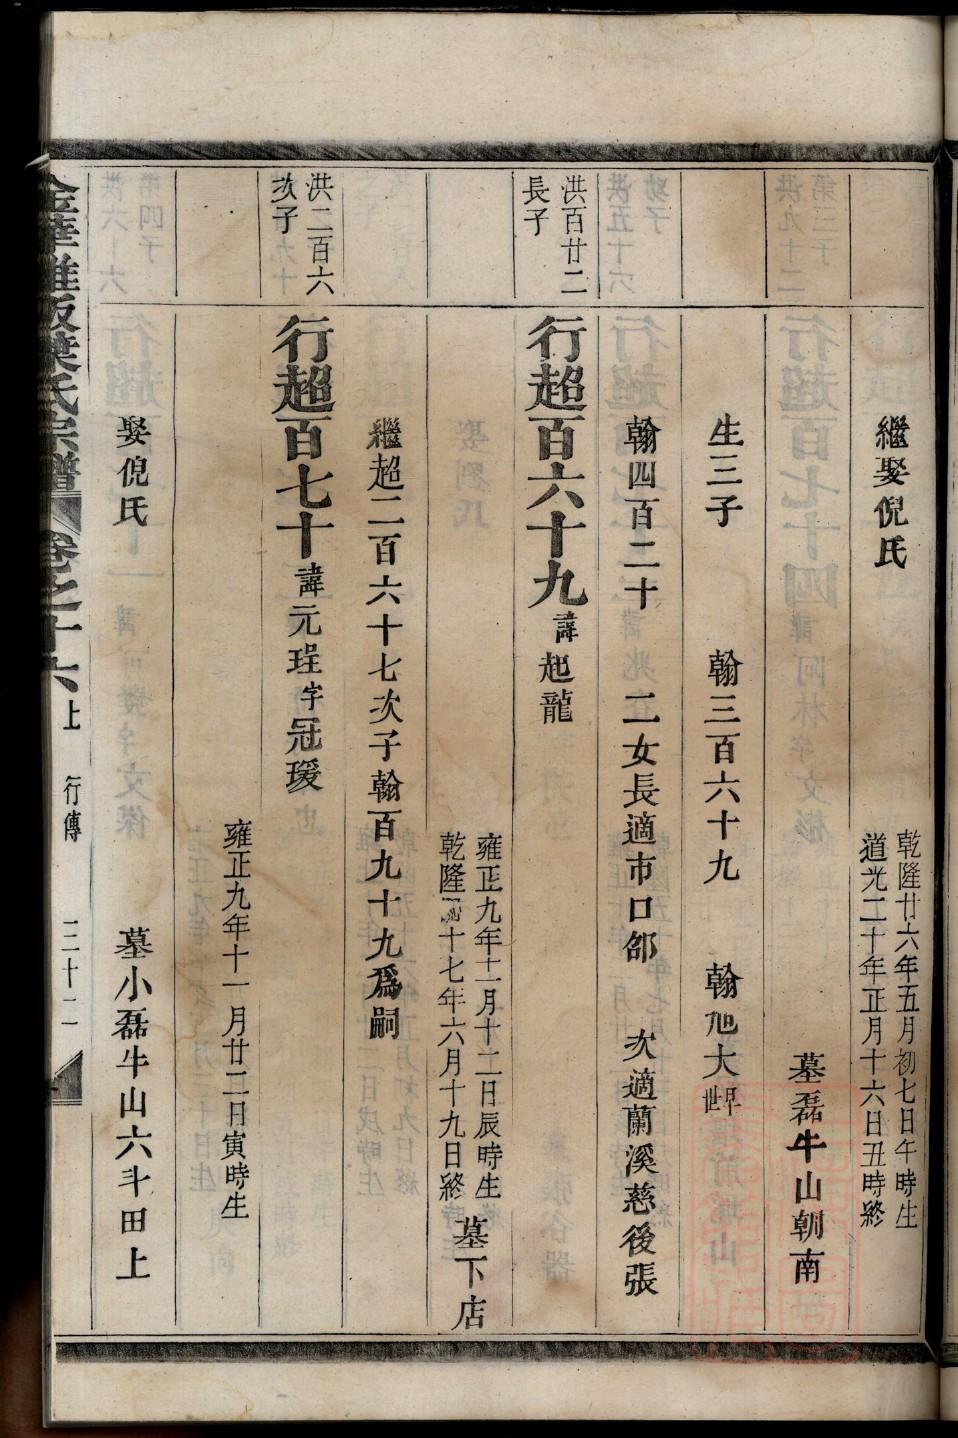 繼娶倪氏
乾隆廿六年五月初七日午時生
道光二十年正月十六日丑時終
墓磊牛山朝南
生三子 翰三百六十九 翰旭大
翰四百二十 二女長適市口邰 次適蘭溪慈後張
洪百廿二
長子
行超百六十九諱起龍
雍正九年十一月十二日辰時生
乾隆十七年六月十九日終
墓下店
繼超二百六十七次子翰百九十九爲嗣
洪二百六
次子
行超百七十諱元珵字冠瑗
雍正九年十一月廿二日寅時生
娶倪氏 墓小磊牛山六斗田上
金華雅畈葉氏宗譜 卷之十六上 行傳 三十二